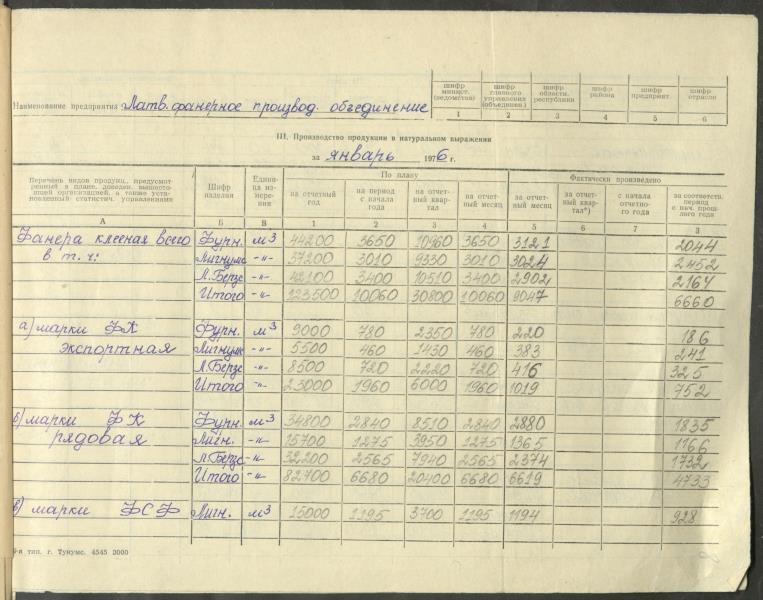 Наименование предприятия Латв. фанерное производ. объединение
шифр минист. (ведомства) шифр главного управления (объединен.) шифр области, республики шифр района шифр предприят. шифр отрасли
1 2 3 4 5 6
III. Производство продукции в натуральном выражении
за январь 1976 г.
Перечень видов продукц., предусмотренный в плане, доведен. вышестоящей организацией, а также установленный статистич. управлениями Шифр изделия Единица измерения По плану Фактически произведено
на отчетный год на период с начала года на отчетный квартал на отчетный месяц за отчетный месяц за отчетный квартал*) с начала отчетного года за соответств. период с нач. прошлого года
А Б В 1 2 3 4 5 6 7 8
Фанера клееная всего Фурн. м3 44200 3650 10960 3650 3121 2044
в т. ч: Лигнумс -"- 37200 3010 9330 3010 3024 2452
Л. Берзс -"- 42100 3400 10510 3400 2902 2164
Итого -"- 123500 10060 30800 10060 9047 6660
а) марки ФК Фурн. м3 9000 780 2350 780 220 186
экспортная Лигнумс -"- 5500 460 1430 460 383 241
Л. Берзс -"- 8500 720 2220 720 416 325
Итого -"- 23000 1960 6000 1960 1019 752
б) марки ФК Фурн. м3 34800 2840 8510 2840 2880 1835
рядовая Лигн. -"- 15700 1275 3950 1275 1365 1166
Л. Берзс -"- 32200 2565 7940 2565 2374 1732
Итого -"- 82700 6680 20400 6680 6619 4733
в) марки ФСФ Лигн. м3 15000 1195 3700 1195 1194 928
тип. г. Тукумс. 4545 3000